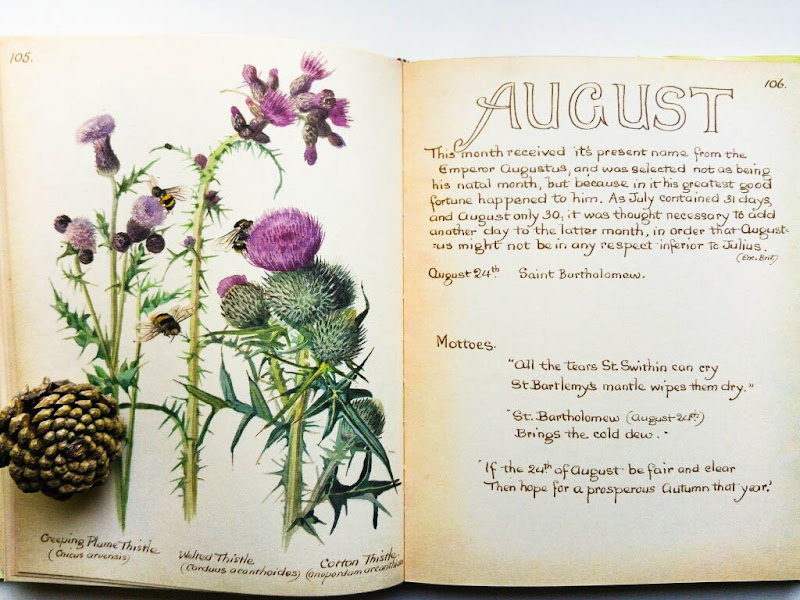 105.
Creeping Plume Thistle
(Cnicus arvensis)
Welted Thistle
(Carduus acanthoides)
Cotton Thistle.
(Onopordum acanthium
106.
AUGUST
This month received it's present name from the
Emperor Augustus, and was selected not as being
his natal month, but because in it his greatest good
fortune happened to him. As July contained 31 days,
and August only 30; it was thought necessary to add
another day to the latter month, in order that August-
-us might not be in any respect inferior to Julius.
(Enc. Brit)
August 24th Saint Bartholomew.
Mottoes.
"All the tears St. Swithin can cry
St. Bartlemy's mantle wipes them dry."
"St. Bartholomew (August 24th)
Brings the cold dew."
"If the 24th of August be fair and clear
Then hope for a prosperous Autumn that year."